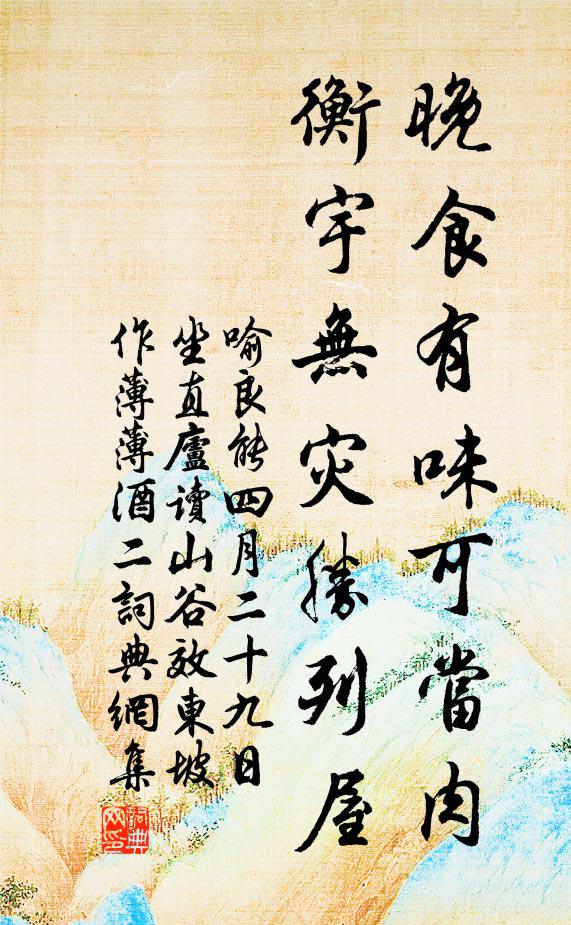 晚食有味可當肉
衡宇無灾勝列屋
喻良能四月二十九日
坐直廬讀山谷效東坡
作薄薄酒二詞典網集
詞典
网印